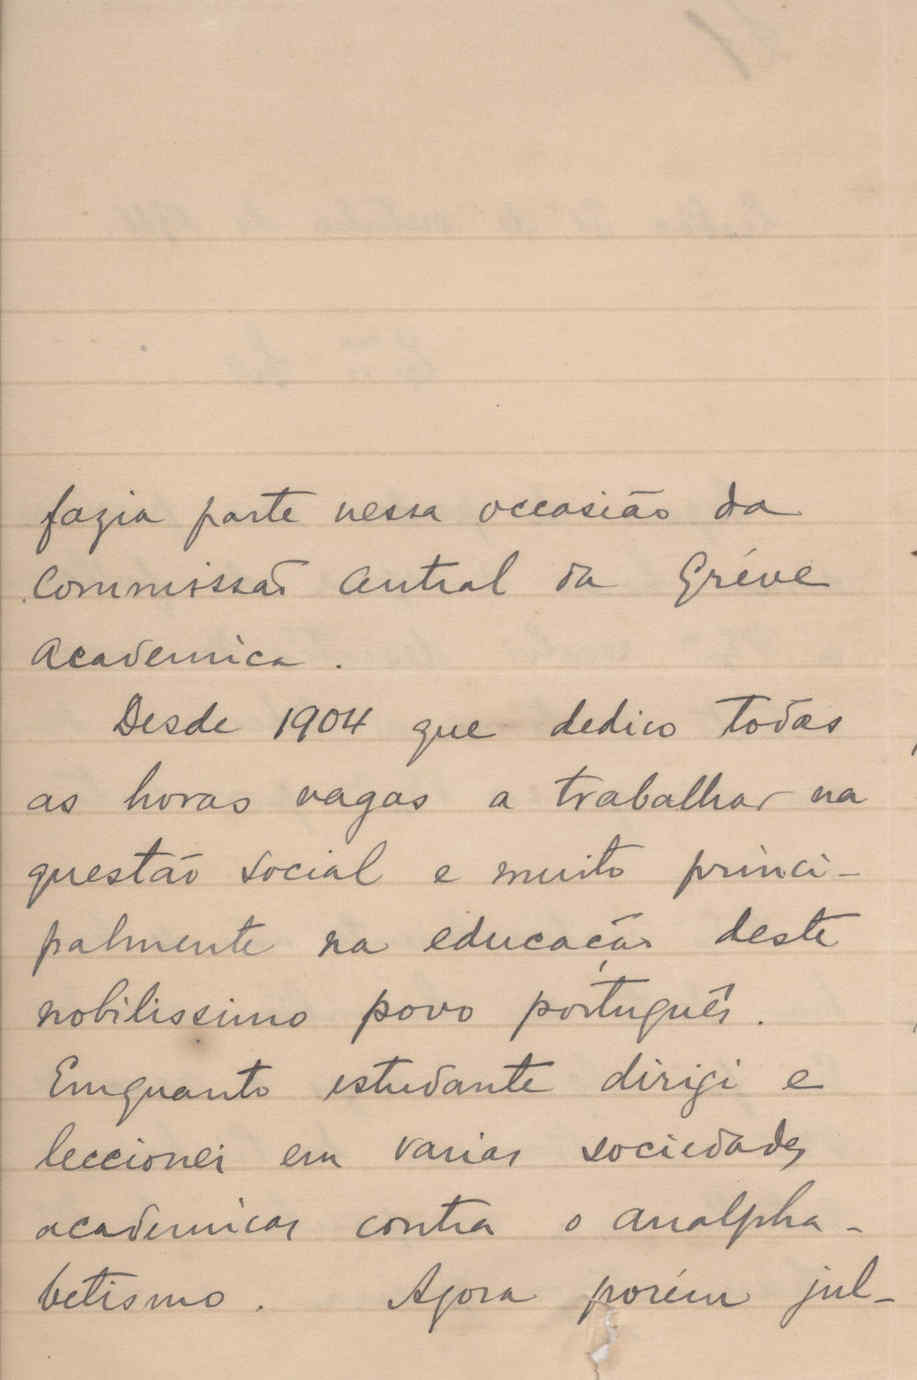 fazia parte nessa occasião da
Commissão Central da Gréve
Academica.
Desde 1904 que dedico todas
as horas vagas a trabalhar na
questão social e muito princi-
palmente na educação deste
nobilissimo povo português.
Emquanto estudante dirigi e
leccionei em varias sociedades
academicas contra o analpha-
betismo. Agora porém jul-